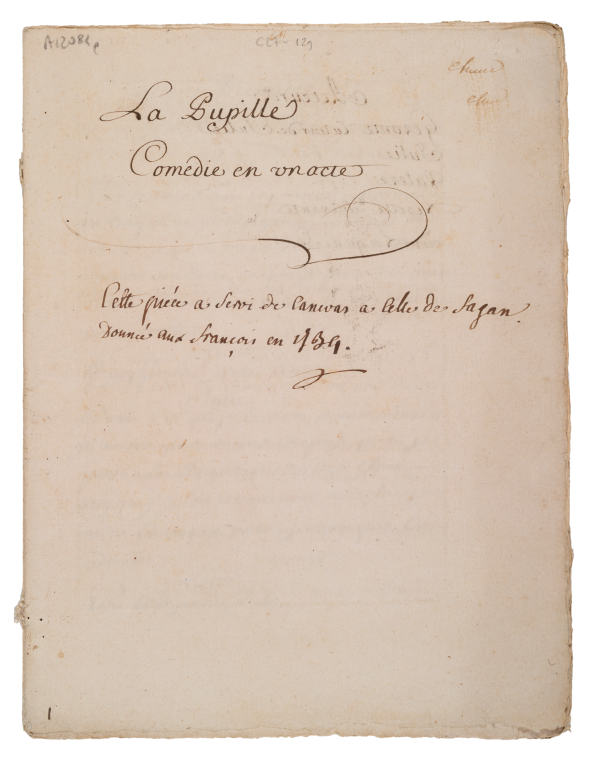 A12081
La Pupille
Comédie en vn acte
Cette piéce a Servi de Canevas a Celle de fagan.
Donnée aux françois en 1734.
1